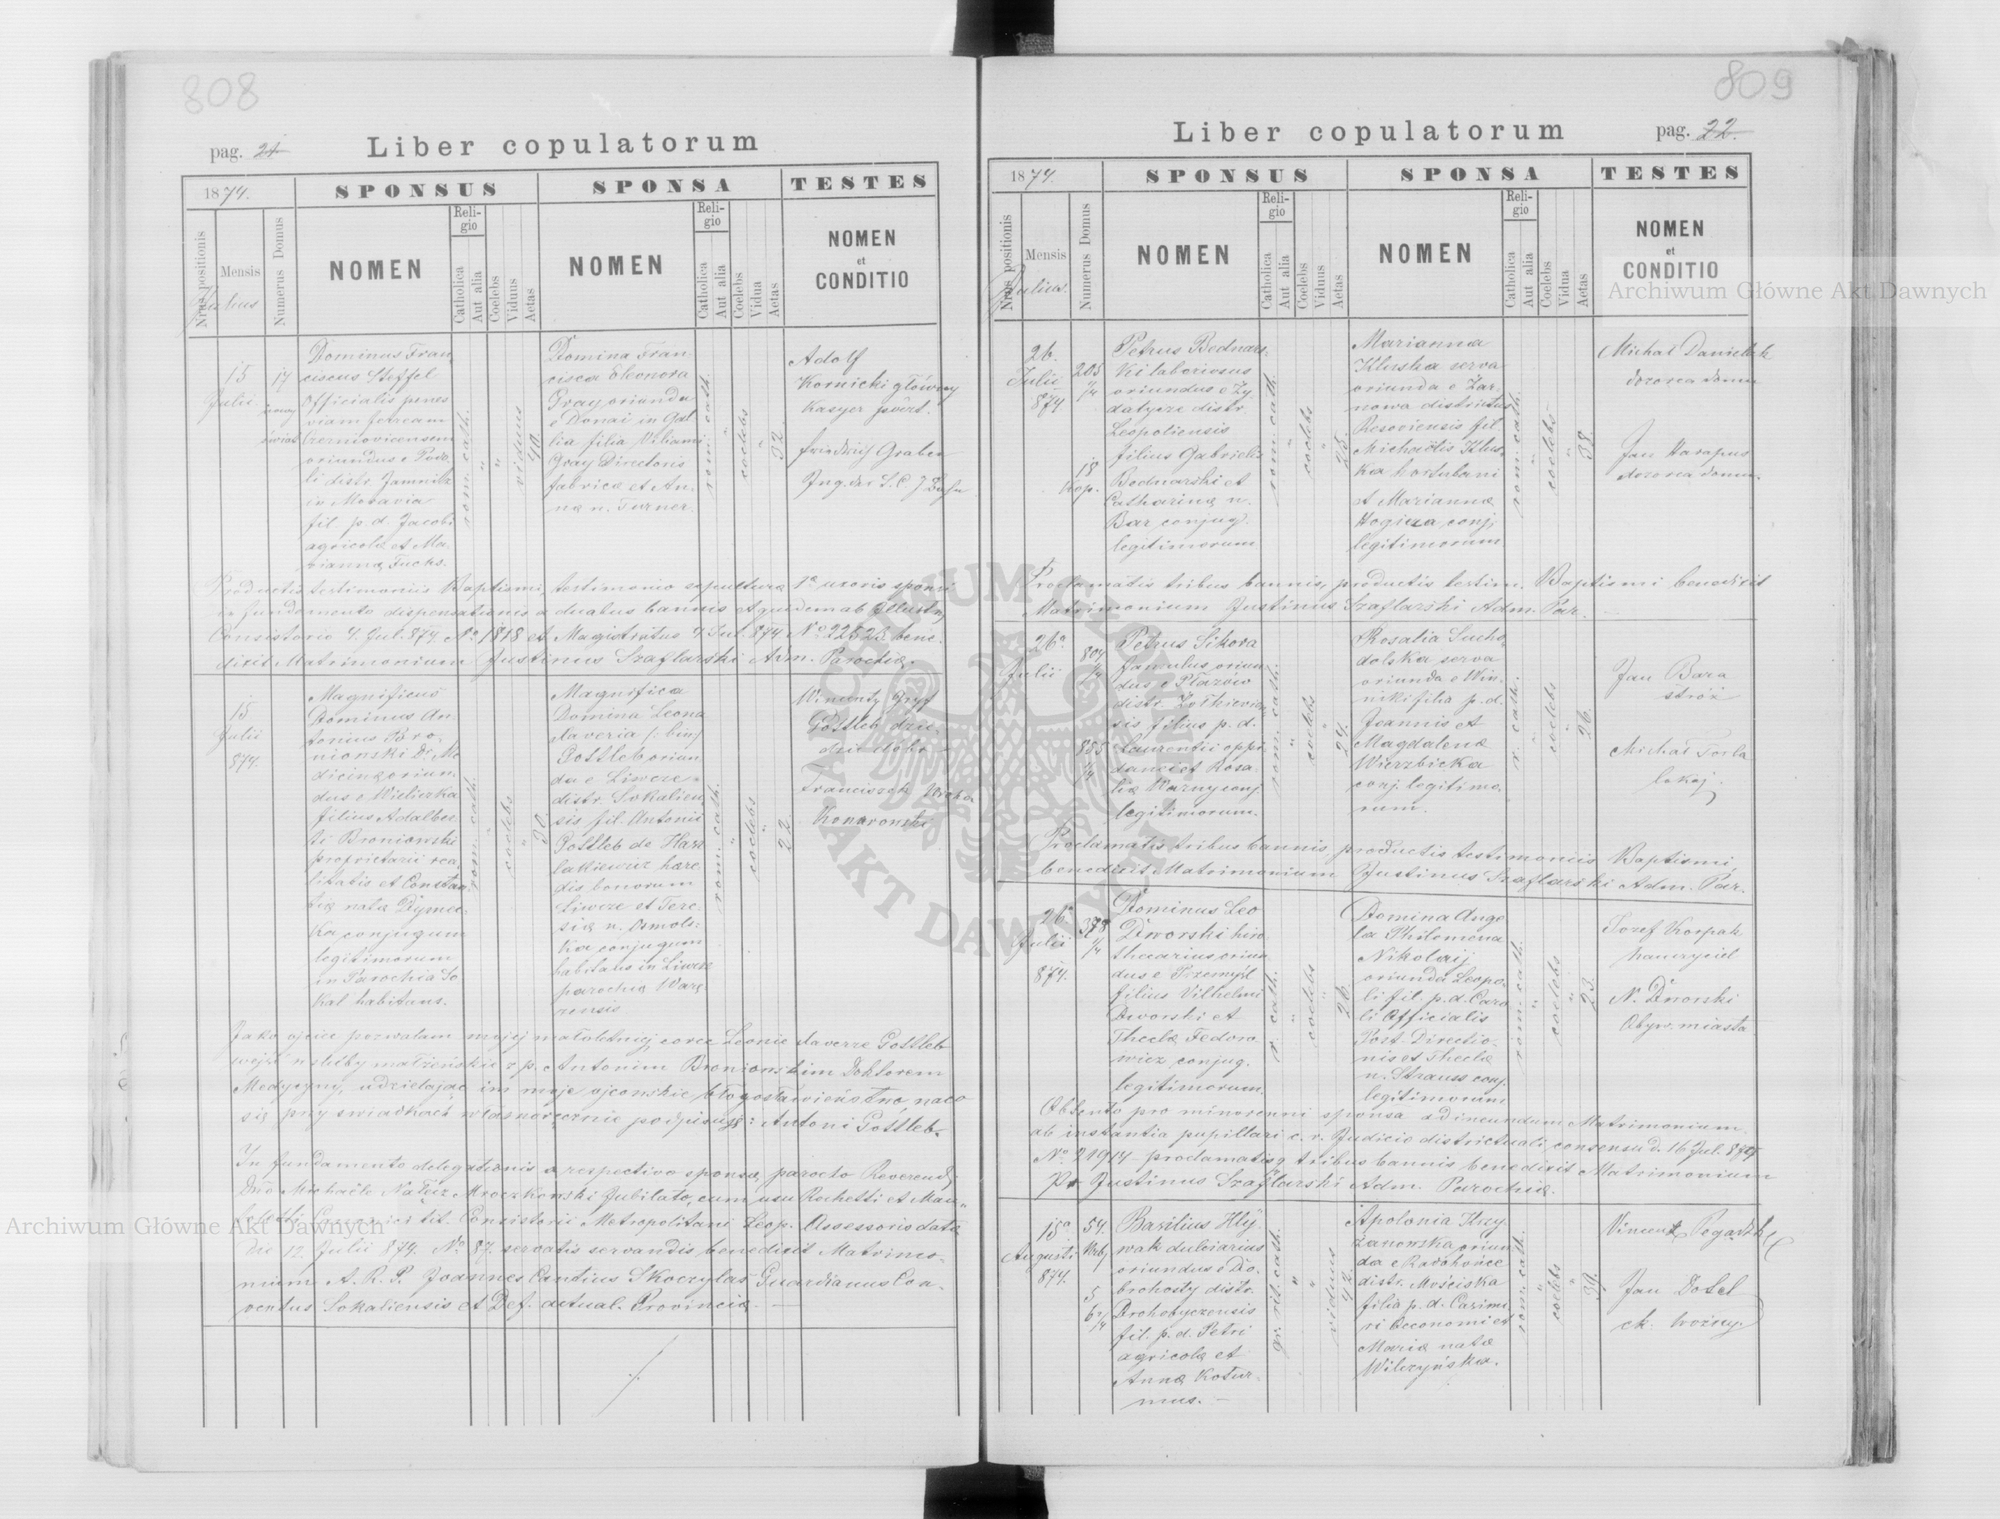 808
pag. 21
Liber copulatorum
1874.
SPONSUS
SPONSA
TESTES
Nrus positionis
Mensis
Julius
Numerus Domus
NOMEN
Religio
Catholica
Aut alia
Coelebs
Viduus
Aetas
NOMEN
Religio
Catholica
Aut alia
Coelebs
Vidua
Aetas
NOMEN
et
CONDITIO
15
Julii
17
Dominus Fran
ciscus Steffel
Officialis penes
viam ferream
Czerniovicensem
oriundus e
li distr. Jamnitz
in Moravia
fil. p. d. Jacobi
agricolæ et Ma
rianna Fuchs.
rom. cath.
viduus
40
Domina Fran
cisca Eleonora
Gray oriunda
e Donai in Gal
lia filia Viliami
Gray Directoris
fabricæ et An
næ n. Turner.
rom. cath.
coelebs
32
Adolf
Kornicki główny
Kasyer
Friedrich Graben
Ing. der L. C. J Bahn
Productis testimoniis Baptismi, testimonio sepulturæ 1æ uxoris sponsi
in fundamento dispensationis a duabus bannis et quidem ab Illustr
Consistorio 4. Jul. 874 No 1818 et Magistratus 4 Jul. 874 No bene
dixit Matrimonium Justinus Szaflarski Adm. Parochiæ.
15
Julii
874.
Magnificus
Dominus An
tonius Bro
niowski Dr. Me
dicinæ oriun
dus e Wieliczka
filius Adalber
ti Broniowski
proprietarii rea
litatis et Constan
tiæ natæ Dymec
ka conjugum
legitimorum
in Parochia So
kal habitans.
rom. cath.
coelebs
30
Magnifica
Domina Leona
Xaveria /: bin/
Gottleb oriun
da e Liwcze
distr. Sokalien
sis fil. Antonii
Gottleb de Hasz
lakiewicz hære
dis bonorum
Liwcze et Tere
siæ n. Osmols
ka conjugum
habitans in Liwcze
parochiæ Warę
rensis
rom. cath.
coelebs
22
Wincenty Gryf
Gottleb dzie
dzic dóbr
Franciszek
Konarowski
Jako ojciec pozwalam mojej małoletniej corce Leonie Xaverze Gottleb
wejść w śluby małżeńskie z p. Antonim Broniowskim Doktorem
Medycyny, udzielając im moje ojcowskie błogosławieństwo, na co
się przy świadkach własnoręcznie podpisuję: Antoni Gottleb.
In fundamento delegationis a respectivo sponsæ parocho Reverend
Dno Michaele Nałęcz Mroczkowski Jubilato, cum usu Rochetti et Man
tit. Consistorii Metropolitani Leop. Assessorio data
Die 12. Julii 874 No 87. servatis servandis benedixit Matrimo
nium A. R. P. Joannes Cantius Skoczylas Guardianus Con
ventus Sokaliensis et Def. actual. Provinciæ. —
809
pag. 22.
Liber copulatorum
1874.
SPONSUS
SPONSA
TESTES
Nrus positionis
Mensis
Julius.
Numerus Domus
NOMEN
Religio
Catholica
Aut alia
Coelebs
Viduus
Aetas
NOMEN
Religio
Catholica
Aut alia
Coelebs
Vidua
Aetas
NOMEN
et
CONDITIO
26.
Julii
874
205
1/4
18
Kop.
Petrus Bednars
ki laboriosus
oriundus e Zy
datycze distr.
Leopoliensis
filius Gabrielis
Bednarski et
Catharinæ n.
Bar conjug.
legitimorum
rom. cath.
coelebs
25.
Marianna
Kluska serva
oriunda e Żar
nowa districtus
Resoviensis fil
Michaelis Klus
ka hortulani
et Mariannæ
conj.
legitimorum
rom. cath.
coelebs
38.
Michał Danielak
dozorca domu
Jan Harapus
dozorca domu.
Proclamatis tribus bannis, productis testim. Baptismi benedixit
Matrimonium Justinus Szaflarski Adm. Par.
26a
Julii
804
1/4
855
1/4
Petrus Sikora
famulus oriun
dus e Płazów
distr. Zołkiewien
sis filius p. d.
Laurentii oppi
danei et Rosa
liæ Karny conj
legitimorum.
rom. cath.
coelebs
24.
Rosalia Sucho
dolska serva
oriunda e Win
niki filia p. d.
Joannis et
Magdalenæ
Wierzbicka
conj. legitimo
rum.
r. cath.
coelebs
26.
Jan Bara
stróż
Michał Torba
lokaj
Proclamatis tribus bannis, productis testimoniis Baptismi,
benedixit Matrimonium Justinus Szaflarski Adm. Par.
26a
Julii
874.
378
1/4
Dominus Leo
Dworski hiro
thecarius oriun
dus e Przemyśl
filius Vilhelmi
Dworski et
Theclæ Fedoro
wicz conjug.
legitimorum.
r. cath.
coelebs
26.
Domina Ange
la Philomena
Nikolaij
oriunda Leopo
li fil. p. d. Caro
li Officialis
Post. Directio
nis et Theclæ
n. Strauss conj.
legitimorum
rom. cath.
coelebs
23.
Jozef Korpak
nauczyciel
N. Dworski
Obyw. miasta
Obtento pro minorenni sponsa ad ineundum Matrimonium
ab instantia pupillari c. r. Judicio districtuali consensu d. 16 Jul. 874
No 21914 proclamatisq tribus bannis benedixit Matrimonium
Pr Justinus Szaflarski Adm. Parochiæ.
15a
Augusti
874.
54.
5
1/4
Basilius Hły
wak dulciarius
oriundus e Do
brohosty distr.
Drohobyczensis
fil. p. d. Petri
agricolæ et
Annæ Kotur
mus. —
gr. rit. cath.
viduus
42.
Apolonia Krzy
żanowska oriun
da e Radohońce
distr. Mościska
filia p. d. Casimi
ri Oeconomi et
Mariæ natæ
Wilczyńska.
rom. cath.
coelebs
39.
Vincent
Jan Dosel
ck. woźny
ARCHIWUM GŁÓWNE AKT DAWNYCH
Archiwum Główne Akt Dawnych
Archiwum Główne Akt Dawnych